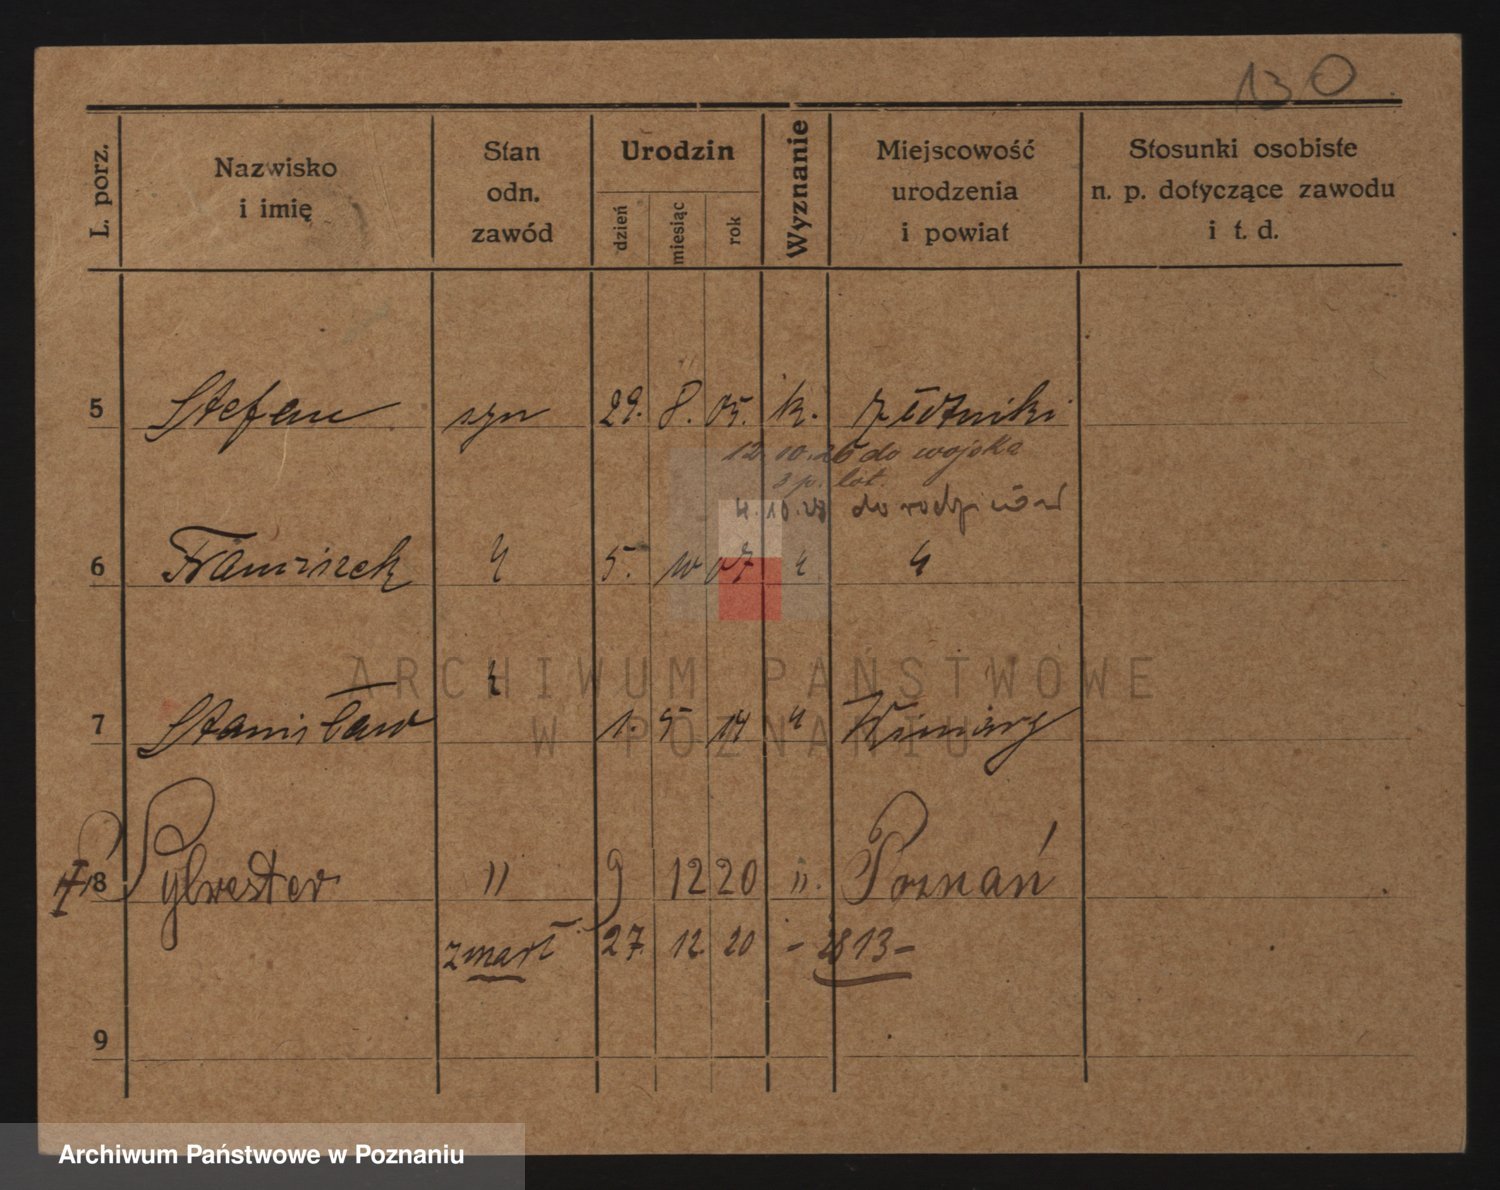 130
L. porz. Nazwisko i imię Stan odn. zawód Urodzin dzień miesiąc rok Wyznanie Miejscowość urodzenia i powiat Stosunki osobiste n. p. dotyczące zawodu i t. d.
5 Stefan syn 29. 8. 05. k. Złotniki
12.10.26 do wojska
3 p. lot.
4.10.28 do rodziców
6 Franciszek " 5. 10 07 " "
"
7 Stanisław 1. 5 14 " Winiary
8 Sylwester " 9 12 20 " Poznań
zmarł 27. 12. 20 - 2813-
9
ARCHIWUM PAŃSTWOWE
W POZNANIU
Archiwum Państwowe w Poznaniu